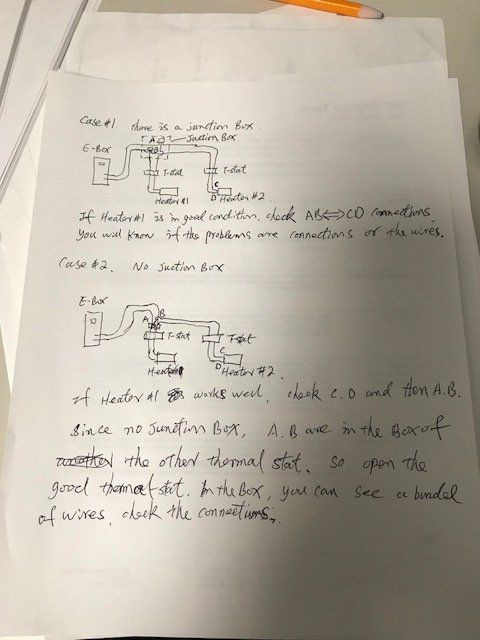 Case #1. there is a junction Box.
A
Juction Box
E-Box
B
T-stat
T-stat
C
Heater #1
D Heater #2.
If Heater#1 is in good condition, check AB⟺CD connections.
You will know if the problems are connections or the wires.
Case #2. No Juction Box
E-Box
A
B
T-stat
T-stat
C
D
Heater #2.
If Heater #1 works well, check C.D and then A.B.
Since no Junction Box, A.B are in the Box of
the other thermal stat. So open the
good thermal stat. In the Box, you can see a bundel
of wires, check the connections.